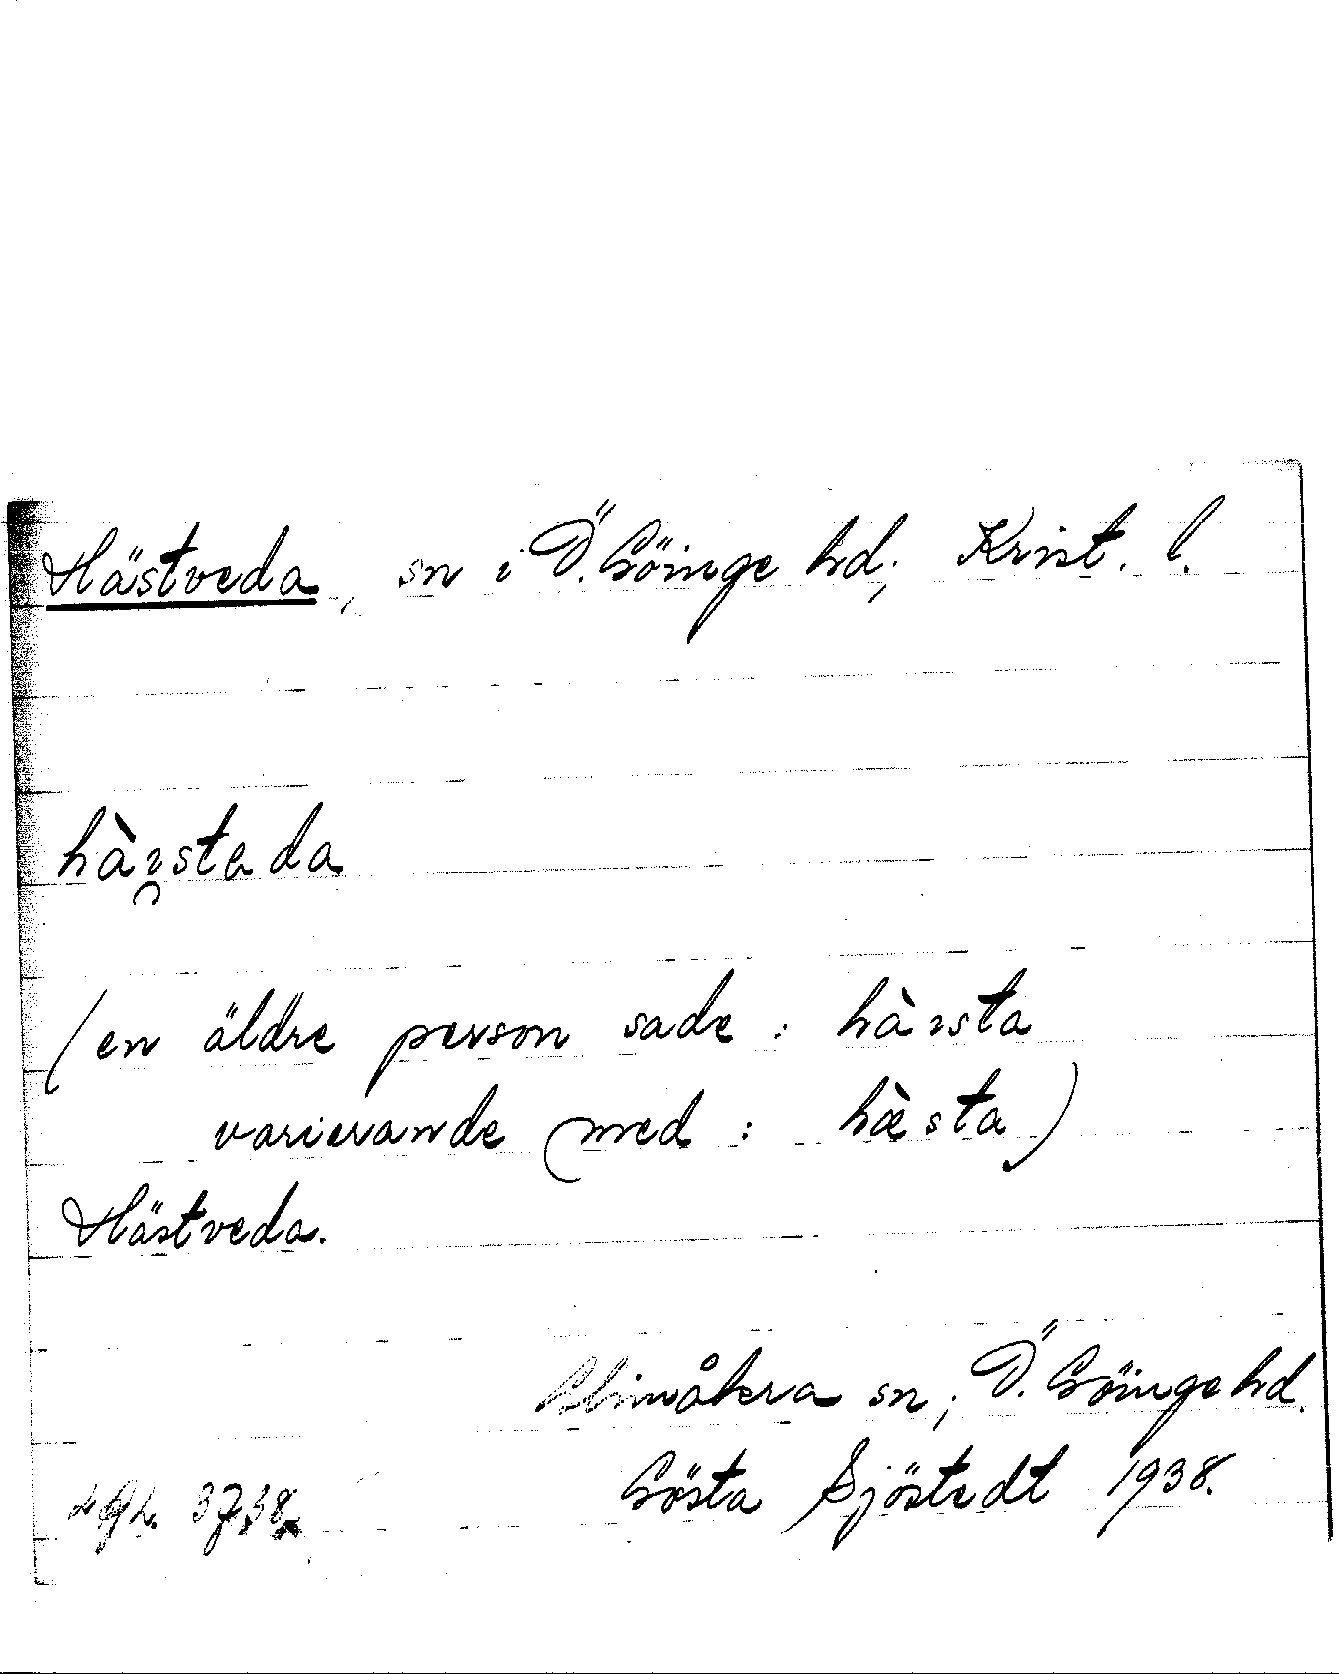 Hästveda, sn i Ö. Göinge hd, Krist. l.
hàı̯stada
(en äldre person sade: hàısta
varierande med: hæ̀sta)
Hästveda.
Glimåkra sn, Ö. Göinge hd.
Gösta Sjöstedt 1938.